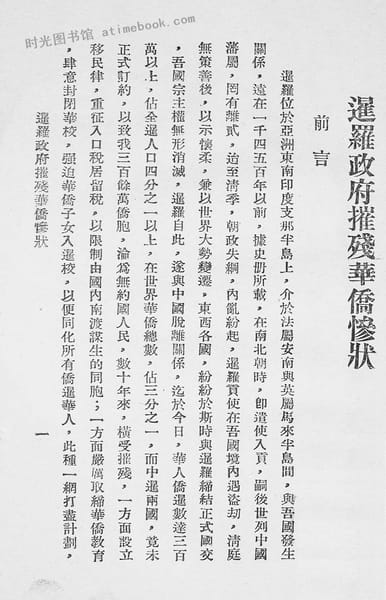 时光图书馆 atimebook.com
暹羅政府摧殘華僑慘狀
前言
暹羅位於亞洲東南印度支那半島上，介於法屬安南與英屬馬來半島間，與吾國發生
關係，遠在一千四五百年以前，據史册所載，在南北朝時，即遣使入貢，嗣後世列中國
藩屬，罔有離貳，迨至清季，朝政失綱，內亂紛起，暹羅貢使在吾國境內遇盜刼，清庭
無策善後，以示懷柔，兼以世界大勢變遷，東西各國，紛紛於斯時與暹羅締結正式國交
，吾國宗主權無形消滅，暹羅自此，遂與中國脫離關係，迄於今日，華人僑暹數達三百
萬以上，佔全暹人口四分之一以上，在世界華僑總數，佔三分之一，而中暹兩國，竟未
正式訂約，以致我三百餘萬僑胞，淪爲無約國人民，數十年來，橫受摧殘，一方面設立
移民律，重征入口稅居留稅，以限制由國內南渡謀生的同胞；一方面嚴厲取締華僑教育
，肆意封閉華校，强迫華僑子女入暹校，以便同化所有僑暹華人，此種一網打盡計劃，
暹羅政府摧殘華僑慘狀
一